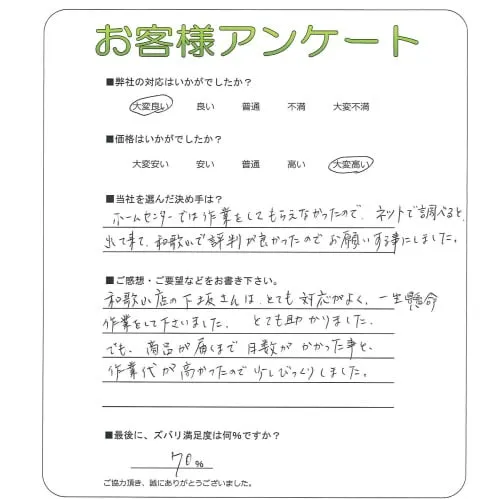 お客様アンケート
■弊社の対応はいかがでしたか?
大変良い 良い 普通 不満 大変不満
■価格はいかがでしたか?
大変安い 安い 普通 高い 大変高い
■当社を選んだ決め手は?
ホームセンターでは作業をしてもらえなかったので、ネットで調べると、
出て来て、和歌山で評判が良かったのでお願いする事にしました。
■ご感想・ご要望などをお書き下さい。
和歌山店の下坂さんは、とても対応がよく、一生懸命
作業をして下さいました。 とても助かりました。
でも、商品が届くまで日数がかかった事と、
作業代が高かったので少しびっくりしました。
■最後に、ズバリ満足度は何%ですか?
70%
ご協力頂き、誠にありがとうございました。